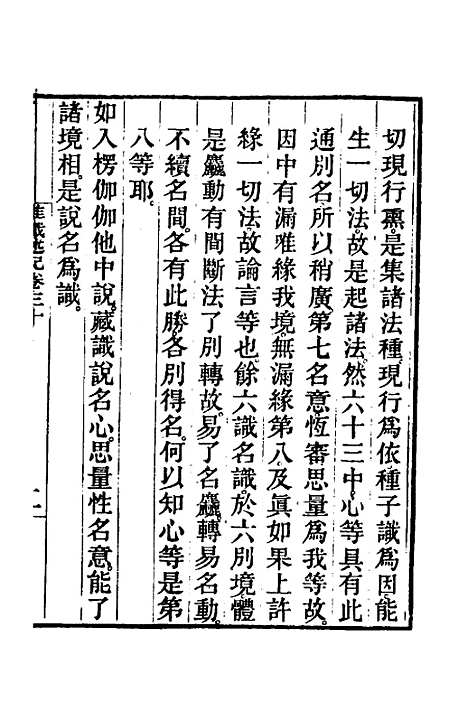 切現行熏。是集諸法種。現行爲依。種子識爲因。能
生一切法故。是起諸法。然六十三中。心等具有此
通別名。所以稍廣。第七名意。恆審思量爲我等故。
因中有漏唯緣我境。無漏緣第八及眞如。果上許
緣一切法故。論言等也。餘六識名識。於六別境。體
是麤動有間斷法。了別轉故。易了名麤。轉易名動。
不續名間。各有此勝。各別得名。何以知心等是第
八等耶。
如入楞伽伽他中說。藏識說名心。思量性名意。能了
諸境相。是說名爲識。
唯識述記卷三十
二